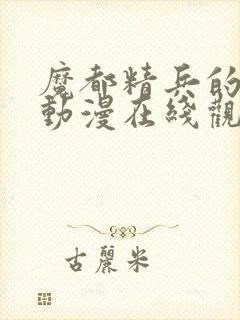 魔都精兵的
動漫在綫觀
古麗米